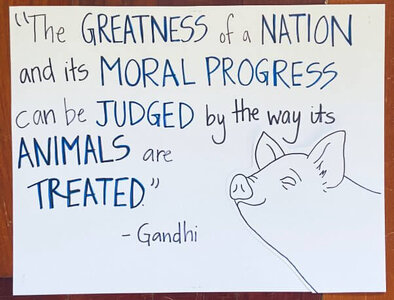 "The GREATNESS of a NATION
and its MORAL PROGRESS
can be JUDGED by the way its
ANIMALS are
TREATED."
- Gandhi